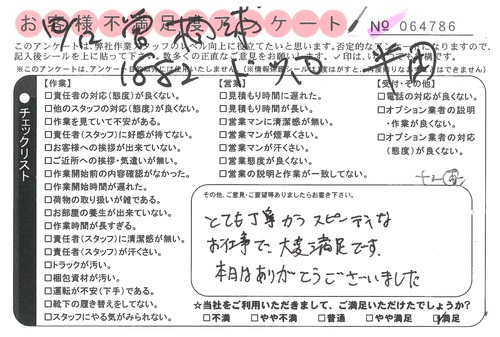 お客様不満足度アンケート
№ 064786
このアンケートは、弊社作業スタッフのレベル向上に役立てたいと思います。否定的なアンケートになりますので、
記入後シールを上に貼って下さい。数多くの正直なご意見をお願いします。
【作業】
□責任者の対応(態度)が良くない。
□他のスタッフの対応(態度)が良くない。
□作業を見ていて不安がある。
□責任者(スタッフ)に好感が持てない。
□お客様への挨拶が出来ていない。
□ご近所への挨拶・気遣いが無い。
□作業開始前の内容確認がなかった。
□作業開始時間が遅れた。
□荷物の取り扱いが雑である。
□お部屋の養生が出来ていない。
□作業時間が長すぎる。
□責任者(スタッフ)に清潔感が無い。
□責任者(スタッフ)が汗くさい。
□トラックが汚い。
□梱包資材が汚い。
□運転が不安(下手)である。
□靴下の履き替えをしてない。
□スタッフにやる気がみられない。
【営業】
□見積もり時間に遅れた。
□見積もり時間が長い。
□営業マンに清潔感が無い。
□営業マンが煙草くさい。
□営業マンが汗くさい。
□営業態度が良くない。
□営業の説明と作業が一致してない。
【受付・その他】
□電話の対応が良くない。
□オプション業者の説明
・作業が良くない。
□オプション業者の対応
(態度)が良くない。
● チェックリスト
その他、ご意見・ご要望等ありましたらお書き下さい。
とても丁寧かつスピーディな
お仕事で、大変満足です。
本日はありがとうございました
☆当社をご利用いただきまして、ご満足いただけたでしょうか?
□不満 □やや不満 □普通 □やや満足 □満足